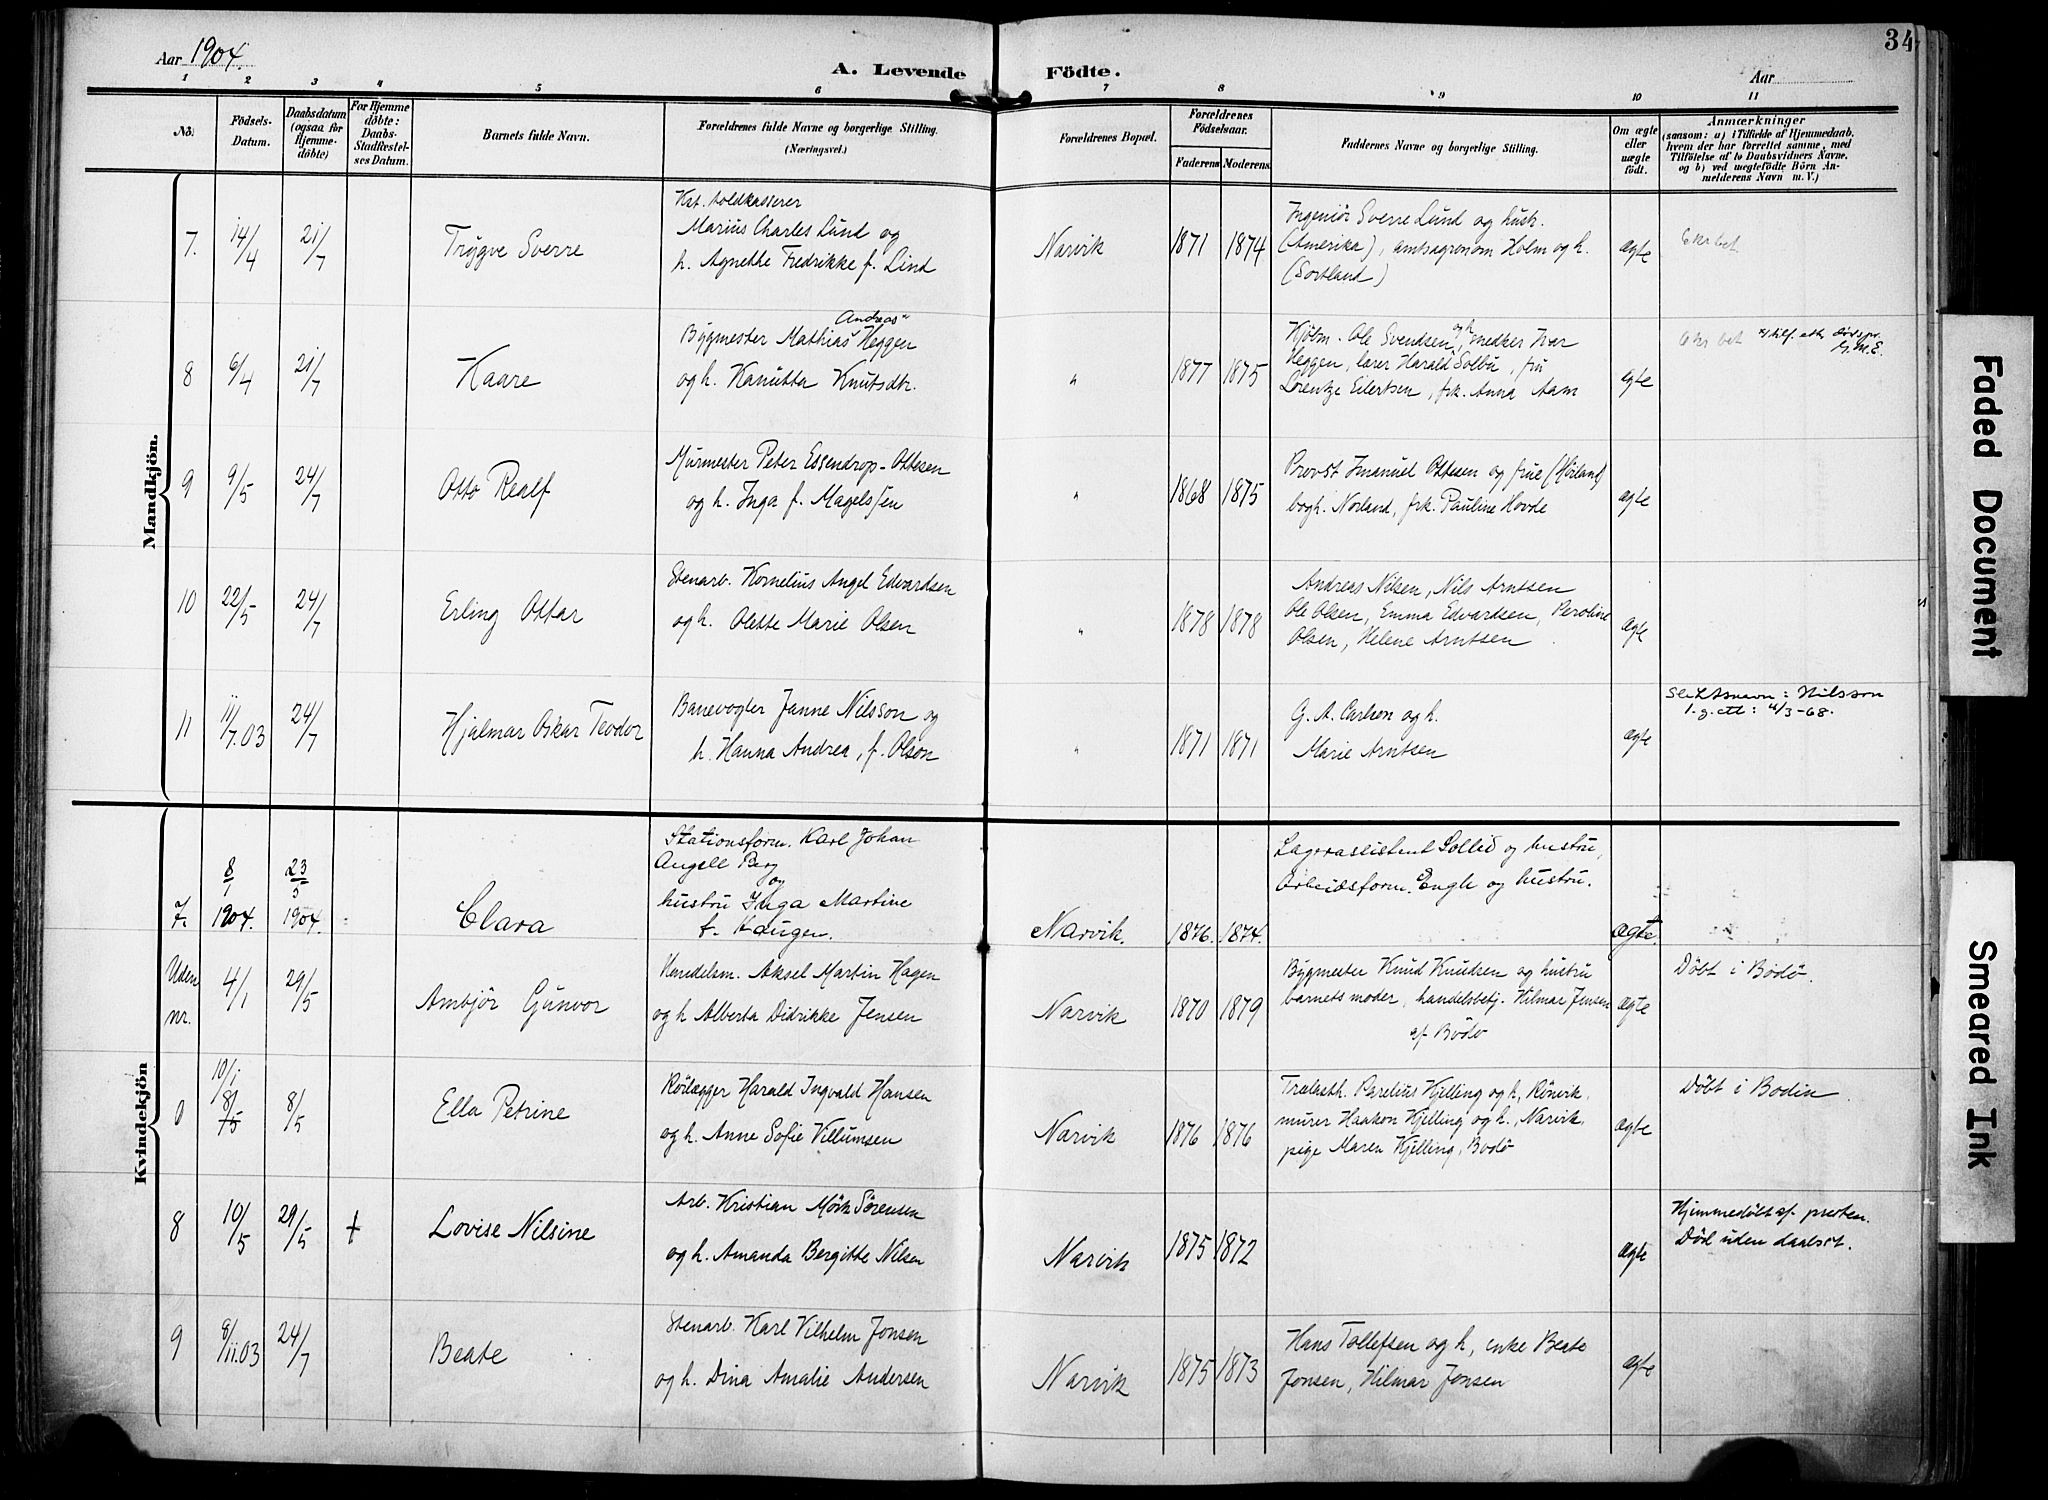 Aar 1904.
A. Levende Födte.
Aar
34
1 2 3 4 5 6 7 8 9 10 11
No.
Födsels-Datum.
Daabsdatum (ogsaa for Hjemme-døbte)
For Hjemme døbte: Daabs-Stadfæstel-ses Datum.
Barnets fulde Navn.
Forældrenes fulde Navne og borgerlige Stilling.
(Næringsvei.)
Forældrenes Bopæl.
Forældrenes Födselsaar.
Faderens Moderens
Faddernes Navne og borgerlige Stilling.
Om ægte eller uægte födt.
Anmærkninger
(saasom: a) i Tilfælde af Hjemmedaab,
hvem der har forrettet samme, med
Tilföielse af to Daabsvidners Navne,
og b) ved uægtefödte Börn An-
melderens Navn m. V.)
Mandkjön.
7. 14/4 21/7 Trygve Sverre
Marius Charles Lund og
h. Agnethe Fredrikke f. Lind
Narvik 1871 1874
Ingeniör Sverre Lund og hustr.
(Amerika), amtsagronom Holm og h.
(Sortland)
ægte
6 kr bet.
8 6/4 21/7 Kaare
Andreas
Bygmester Mathias Heggen
og h. Kanutta Knutsdtr.
" 1877 1875
Kjøbm. Ole Svendsen og h, snedker Ivar
Heggen, lærer Harald Solbu, fru
Lorentze Eilertsen, frk. Anna Aam
ægte
6 kr bet
9 9/5 24/7 Otto Realf
Murmester Peter Essendrop-Ottesen
og h. Inga f. Magelssen
" 1868 1875
Provst Imanuel Ottesen og frue
bogh. Norland, frk. Pauline Hovde
ægte
10 22/5 24/7 Erling Ottar
Stenarb. Kornelius Angel Edvardsen
og h. Olette Marie Olsen
" 1878 1878
Andreas Nilsen, Nils Arntsen
Ole Olsen, Emma Edvardsen, Peroline
Olsen, Helene Arntsen
ægte
11 11/7.03 24/7 Hjalmar Oskar Teodor
Banevogter Janne Nilsson og
h. Hanna Andrea, f. Olson
" 1871 1871
G. A. Carlson og h.
Marie Arntsen
ægte
Slektsnavn: Nilsson
1.g. att: 4/3-68.
Kvindekjön
7. 8/1 1904. 23/5 1904. Clara
Stationsform. Karl Johan
Angell Berg
og
hustru Inga Martine
f. Haugen.
Narvik. 1876. 1874.
Lagerassistent Sollid og hustru,
Arbeidsform. Engh og hustru.
ægte.
Uden nr. 4/1 29/5 Ambjör Gunvor
Handelsm. Aksel Martin Hagen
og h Alberta Didrikke Jensen
Narvik 1870 1879
Bygmester Knud Knudsen og hustru
barnets moder, handelsbetj. Hilmar Jensen
af Bodö
ægte
Döbt i Bodö.
0 10/1 8/5 8/5 Ella Petrine
Rörlægger Harald Ingvald Hansen
og h. Anne Sofie Villumsen
Narvik 1876 1876
Trælasth. Parelius Kjelling og h, Rönvik,
murer Haakon Kjelling og h., Narvik,
pige Maren Kjelling, Bodö
ægte
Döbt i Bodin
8 10/5 29/5 † Lovise Nilsine
Arb. Kristian Mörk Sörensen
og h. Amanda Bergitte Nilsen
Narvik 1875 1872
ægte
Hjemmedöbt af presten.
Död uden daabsst.
9 8/11.03 24/7 Beate
Stenarb. Karl Vilhelm Jonsen
og h. Dina Amalie Andersen
Narvik 1875 1873
Hans Tollefsen og h, enke Beate
Jonsen, Hilmar Jonsen
ægte
Faded Document
Smeared Ink